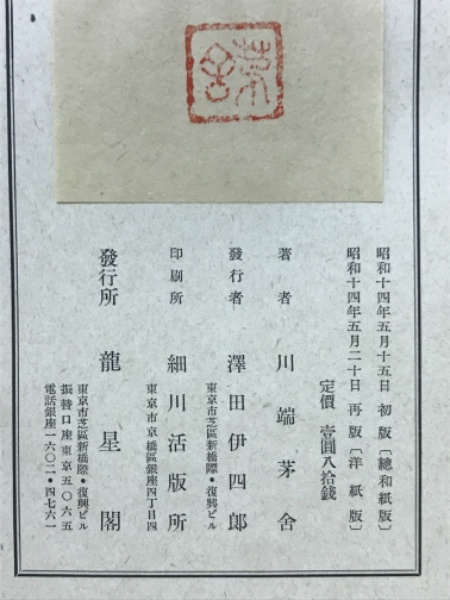 茅舍
昭和十四年五月十五日 初版〔總和紙版〕
昭和十四年五月二十日 再版〔洋紙版〕
定價 壹圓八拾錢
著者 川端茅舍
發行者 澤田伊四郎
東京市芝區新橋際・復興ビル
印刷所 細川活版所
東京市京橋區銀座四丁目四
發行所 龍星閣
東京市芝區新橋際・復興ビル
振替口座東京五〇六五
電話銀座一六〇二・四七六一